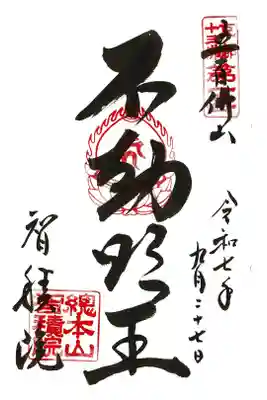 五百佛山
不動明王
令和七年
九月二十七日
智積院
總本山
智積院